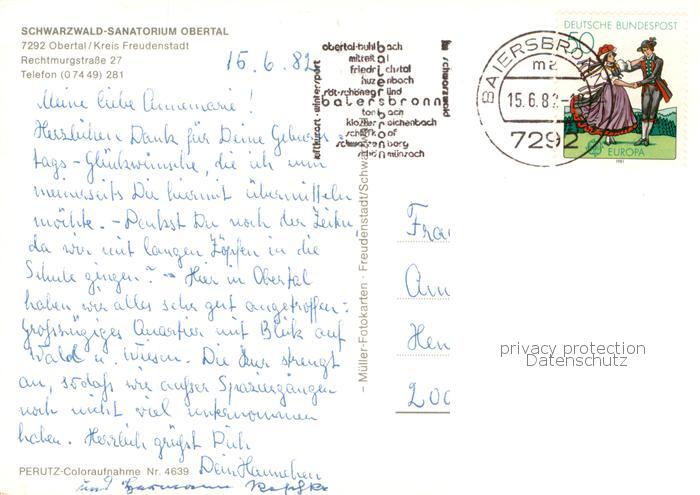 SCHWARZWALD-SANATORIUM OBERTAL
7292 Obertal/Kreis Freudenstadt
Rechtmurgstraße 27
Telefon (07449) 281
15.6.82
Meine liebe Annemarie!
Herzlichen Dank für Deine Geburts-
tags-Glückwünsche, die ich nun
meinerseits Dir hiermit übermitteln
möchte. - Denkst Du noch der Zeiten
da wir mit langen Zöpfen in die
Schule gingen? - Hier in Obertal
haben wir alles sehr gut angetroffen:
Großzügiges Quartier mit Blick auf
Wald u. Wiesen. Die Kur strengt
an, sodaß wir außer Spaziergängen
noch nicht viel unternommen
haben. Herzlich grüßt Dich
Dein Hannchen
und Hermann
PERUTZ-Coloraufnahme Nr. 4639
Müller-Fotokarten · Freudenstadt/Schw
luftkurort · wintersport
obertal-buhlbach
mitteltal
friedrichstal
huzenbach
röt-schönegründ
baiersbronn
tonbach
klosterreichenbach
schwarzenberg
schönmünzach
im schwarzwald
BAIERSBRONN
ma
15.6.82
7292
DEUTSCHE BUNDESPOST
50
EUROPA
1981
Frau
Ann
Hen
200
privacy protection
Datenschutz